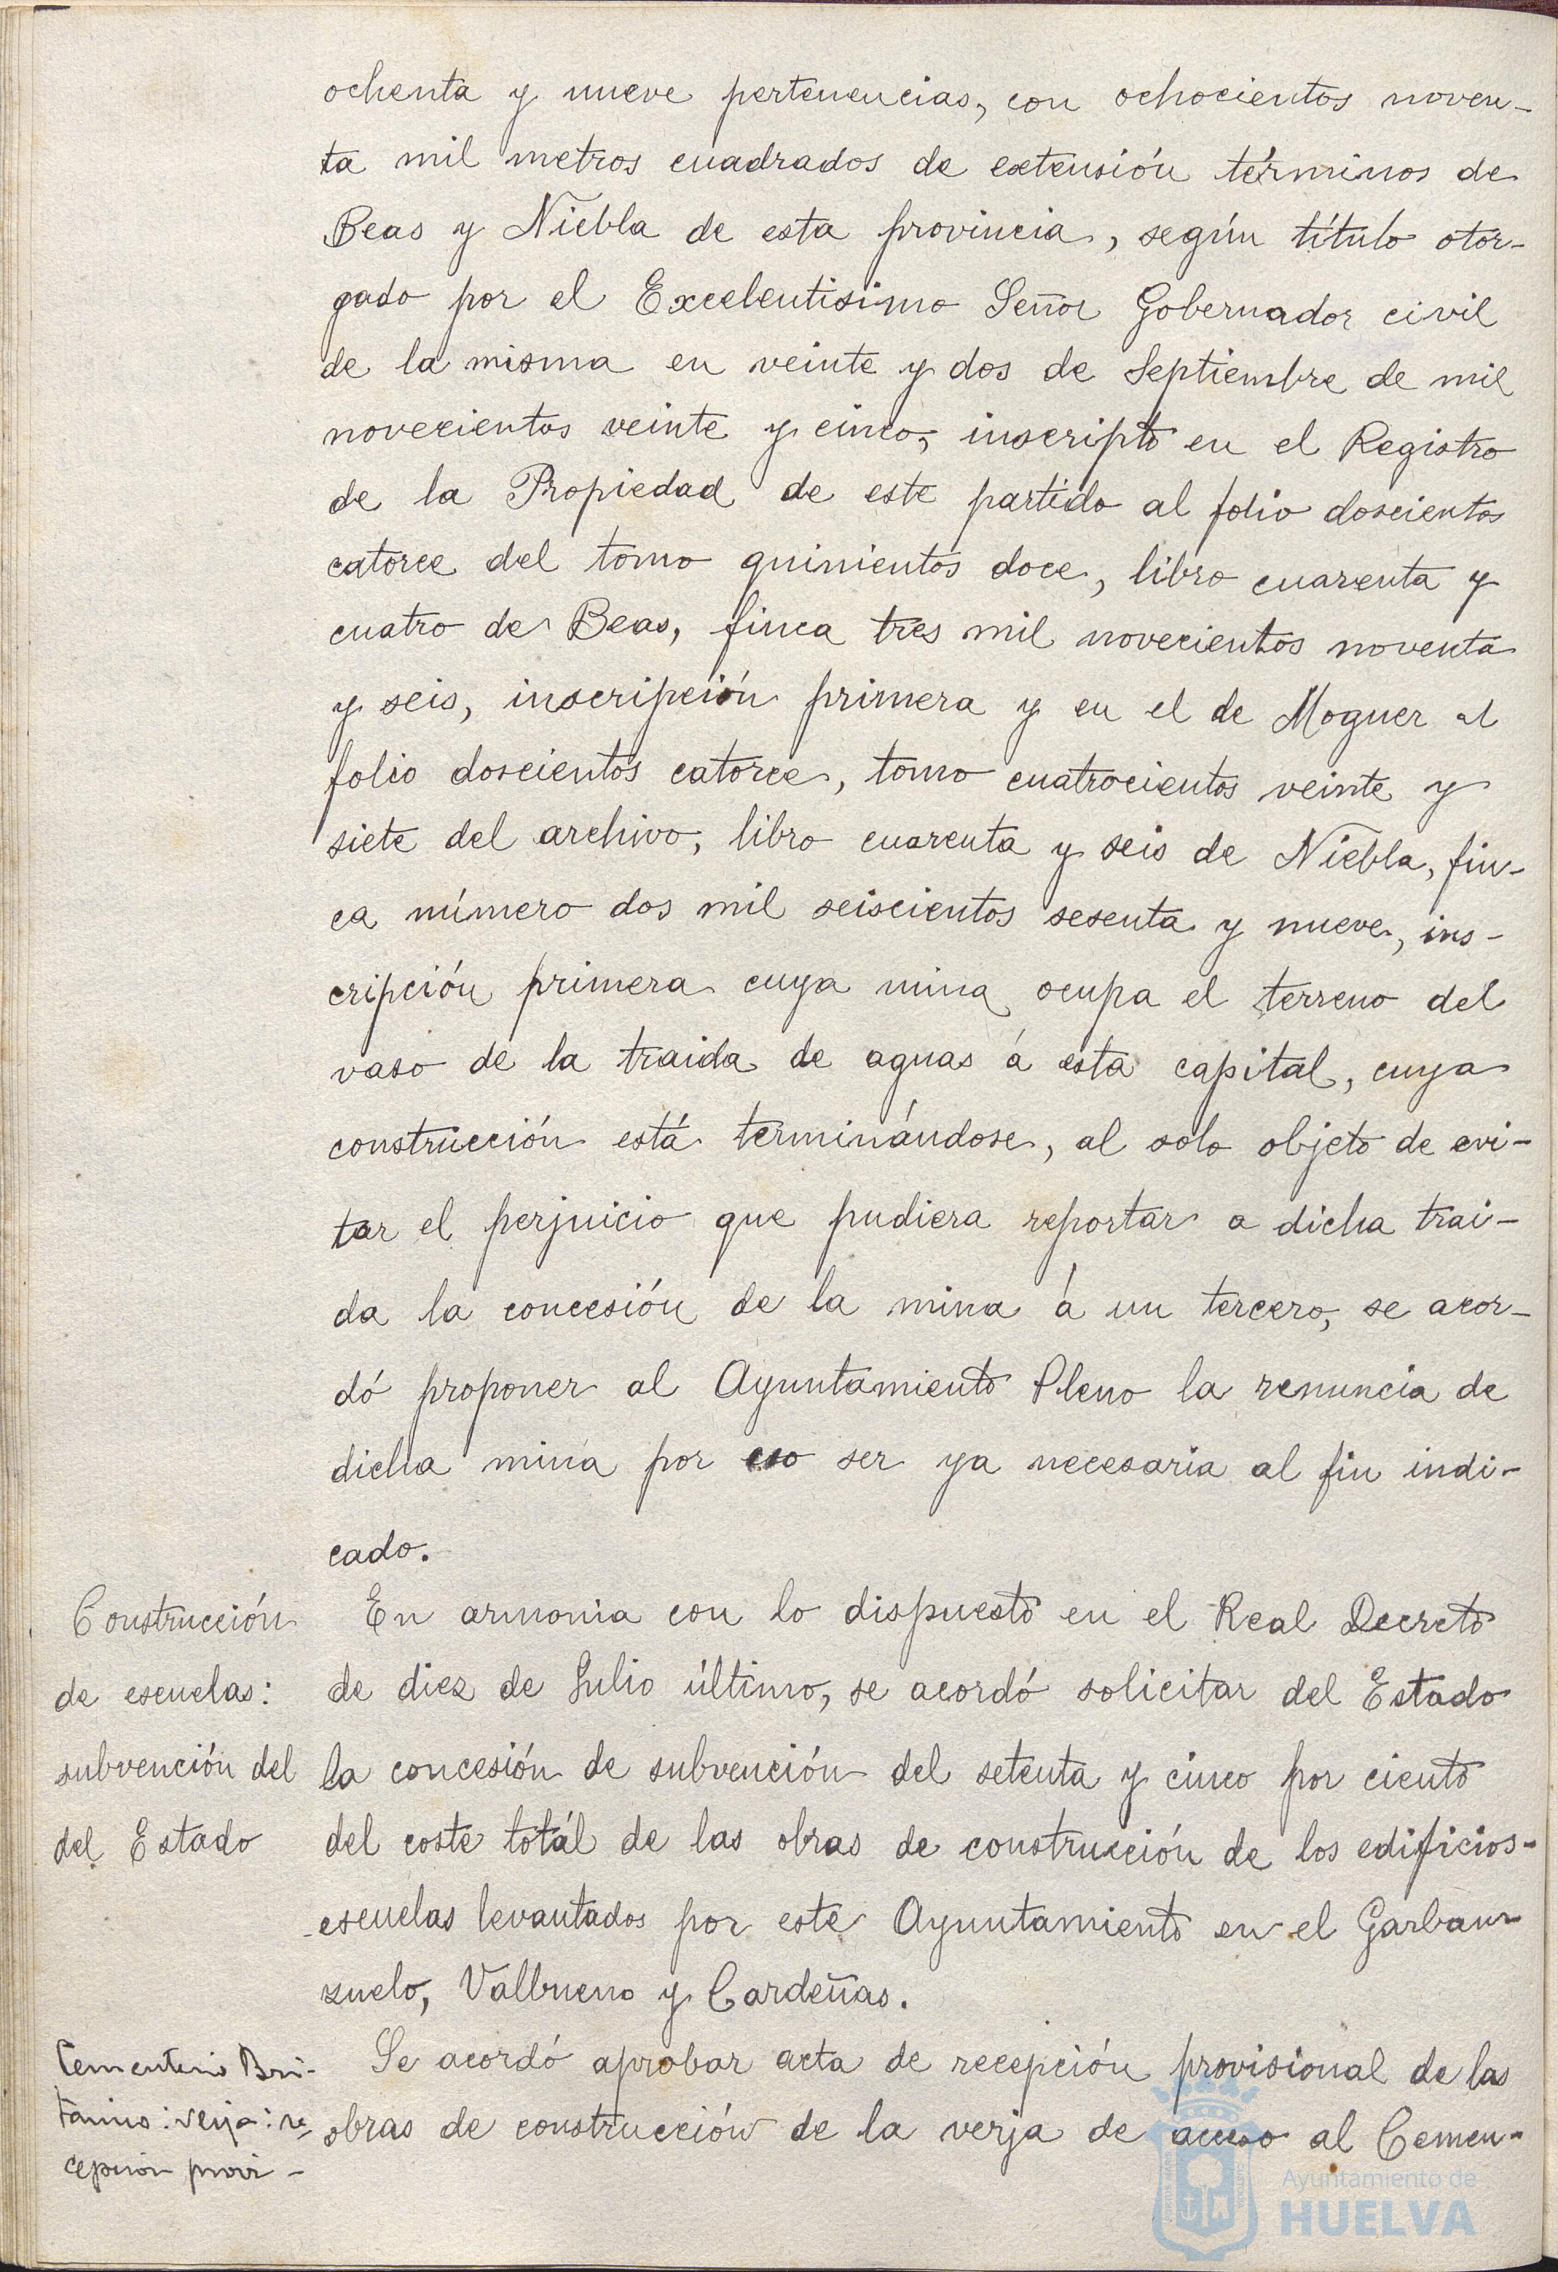 ochenta y nueve pertenencias, con ochocientos noven-
ta mil metros cuadrados de extensión términos de
Beas y Niebla de esta provincia, según título otor-
gado por el Excelentisimo Señor Gobernador civil
de la misma en veinte y dos de Septiembre de mil
novecientos veinte y cinco, inscripto en el Registro
de la Propiedad de este partido al folio doscientos
catorce del tomo quinientos doce, libro cuarenta y
cuatro de Beas, finca tres mil novecientos noventa
y seis, inscripción primera y en el de Moguer al
folio doscientos catorce, tomo cuatrocientos veinte y
siete del archivo, libro cuarenta y seis de Niebla, fin-
ca número dos mil seiscientos sesenta y nueve, ins-
cripción primera cuya mina ocupa el terreno del
vaso de la traida de aguas á esta capital, cuya
construcción está terminándose, al solo objeto de evi-
tar el perjuicio que pudiera reportar a dicha trai-
da la concesión de la mina á un tercero, se acor-
dó proponer al Ayuntamiento Pleno la renuncia de
dicha mina por eso ser ya necesaria al fin indi-
cado.
Construcción
de escuelas:
subvención del
del Estado
En armonia con lo dispuesto en el Real Decreto
de diez de Julio último, se acordó solicitar del Estado
la concesión de subvención del setenta y cinco por ciento
del coste totál de las obras de construcción de los edificios-
escuelas levantados por este Ayuntamiento en el Garban-
zuelo, Valbueno y Cardeñas.
Cementerio Bri-
tanino: verja: re-
cepcion provi-
Se acordó aprobar acta de recepción provisional de las
obras de construcción de la verja de acceso al Cemen-
Ayuntamiento de
HUELVA